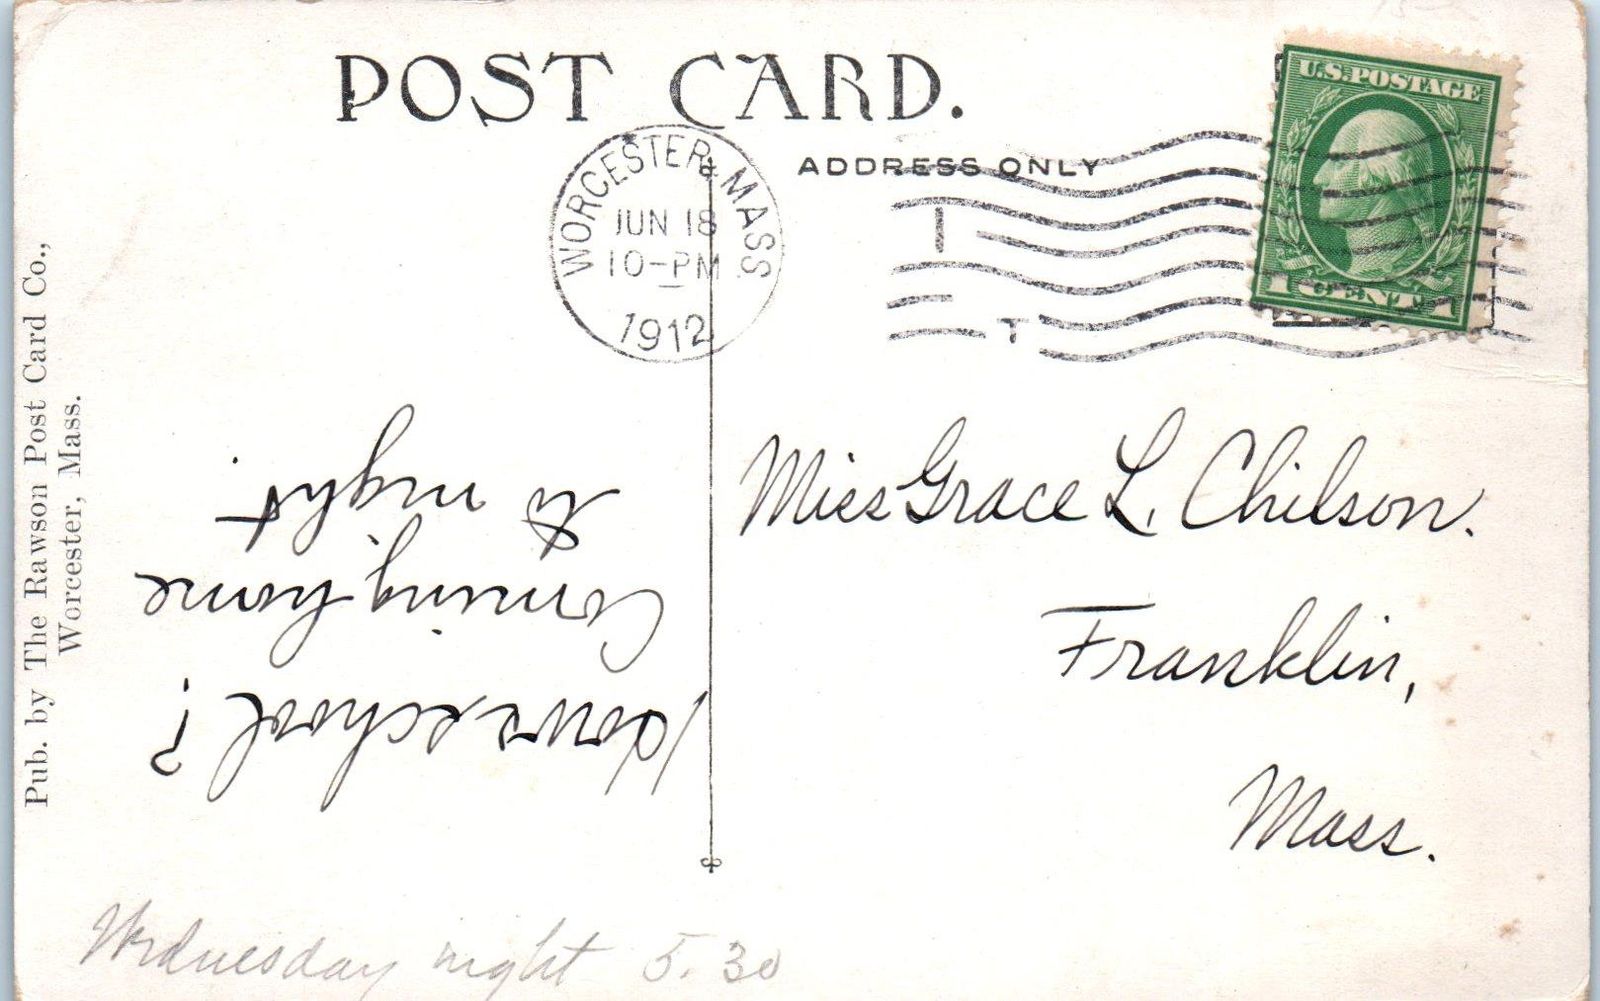 POST CARD.
ADDRESS ONLY
U.S. POSTAGE
1 CENT 1
WORCESTER, MASS.
JUN 18
10-PM
1912
Pub. by The Rawson Post Card Co.,
Worcester, Mass.
Hows school?
Coming home
to night.
Miss Grace L. Chilson.
Franklin,
Mass.
Wednesday night 5.30